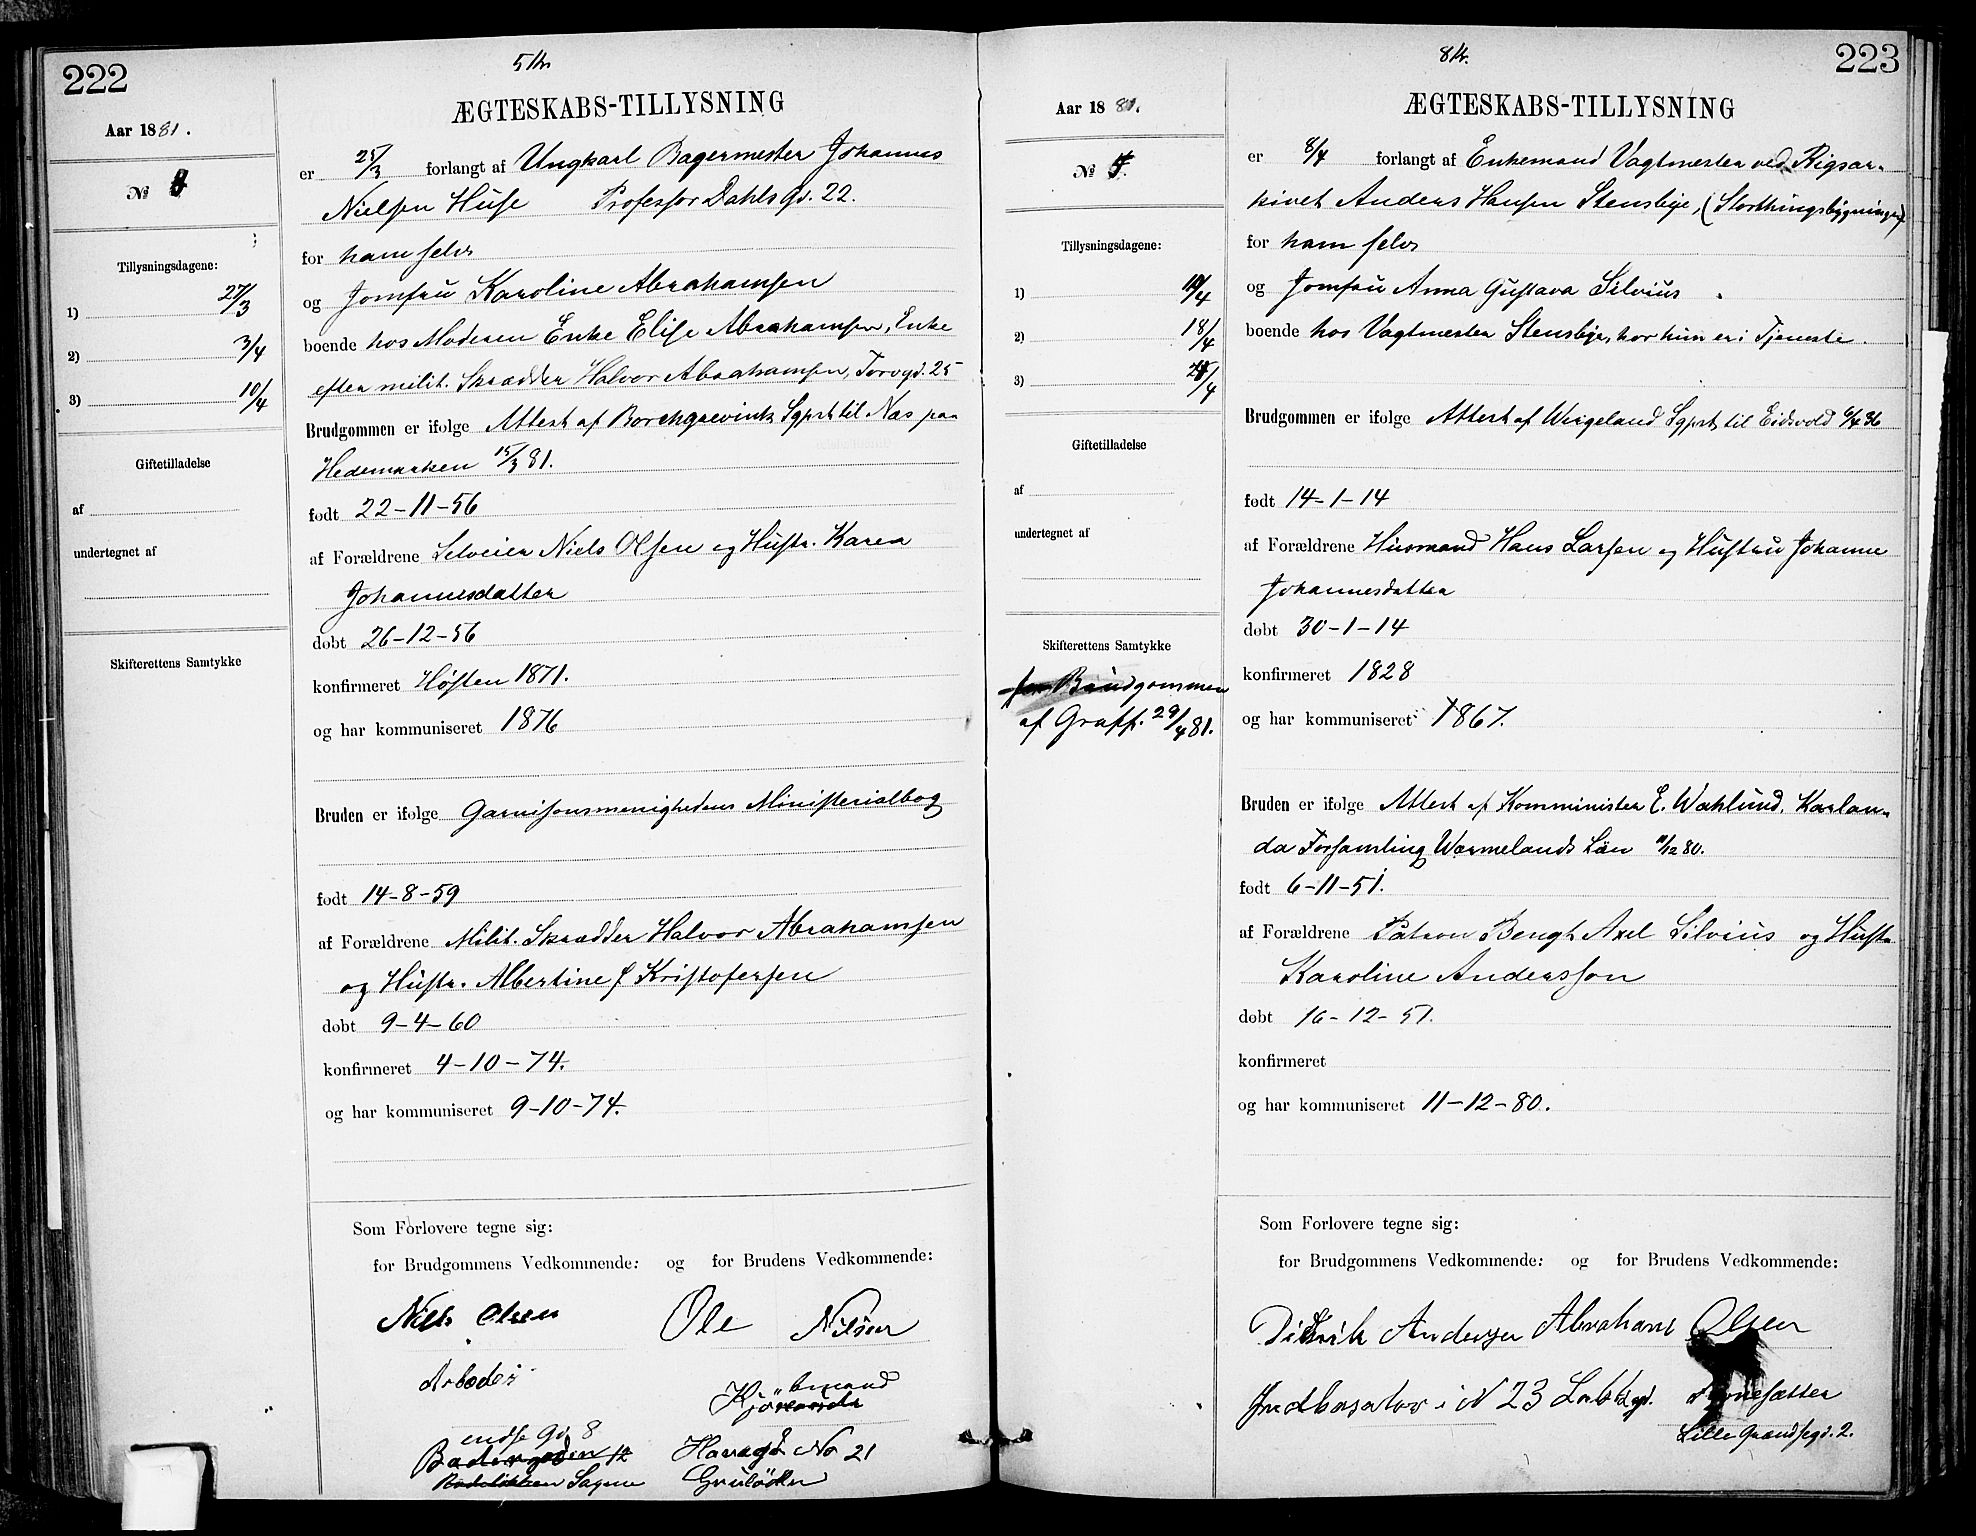 222
5 Kr.
Aar 1881.
ÆGTESKABS-TILLYSNING
№
er 25/3 forlangt af Ungkarl Bagermester Johannes
Nielsen Huse Professor Dahls Gd. 22.
Tillysningsdagene:
for ham selv
1) 27/3
og Jomfru Karoline Abrahamsen
2) 3/4
boende hos Moderen Enke Elise Abrahamsen, Enke
3) 10/4
efter milit. Skrædder Halvor Abrahamsen, Torvgd. 25
Brudgommen er ifølge Attest af Borchgrevink Sgprst til Næs paa
Giftetilladelse
Hedemarken 15/3 81.
af
født 22-11-56
undertegnet af
af Forældrene Selveier Niels Olsen og Hustr. Karen
Johannesdatter
døbt 26-12-56
Skifterettens Samtykke
konfirmeret Høsten 1871.
og har kommuniseret 1876
Bruden er ifølge Garnisonsmenighedens Ministerialbog
født 14-8-59
af Forældrene Milit. Skrædder Halvor Abrahamsen
og Hustr. Albertine f Kristofersen
døbt 9-4-60
konfirmeret 4-10-74.
og har kommuniseret 9-10-74.
Som Forlovere tegne sig:
for Brudgommens Vedkommende: og for Brudens Vedkommende:
Niels Olsen Ole Nilsen
Arbeder
Gd. 8
Havegd No 21
Sagene Grulökken
223
8 Kr.
Aar 1881.
ÆGTESKABS-TILLYSNING
№
er 8/4 forlangt af Enkemand Vagtmester ved Rigsar-
kivet Anders Hansen Stensbye, (Storthingsbygningen)
Tillysningsdagene:
for ham selv
1) 10/4
og Jomfru Anna Gustava Silvius
2) 18/4
boende hos Vagtmester Stensbye, hvor hun er i Tjeneste.
3)
Brudgommen er ifølge Attest af Wergeland Sgprst, til Eidsvold 6/4 36
Giftetilladelse
af
født 14-1-14
undertegnet af
af Forældrene Husmand Hans Larsen og Hustru Johanne
Johannesdatter
døbt 30-1-14
Skifterettens Samtykke
konfirmeret 1828
for Brudgommen
og har kommuniseret 1867.
af Graff. 29/4 81.
Bruden er ifølge Attest af Komminister E. Wahlund, Karlan-
da Forsamling Wermelands Län 11/12 80.
født 6-11-51.
af Forældrene Patron Bengt Axel Silvius og Hustr
Karoline Andersson
døbt 16-12-51.
konfirmeret
og har kommuniseret 11-12-80.
Som Forlovere tegne sig:
for Brudgommens Vedkommende: og for Brudens Vedkommende:
Didrik Andersen Abraham Olsen
i N 23
Lille Grændsegd. 2.